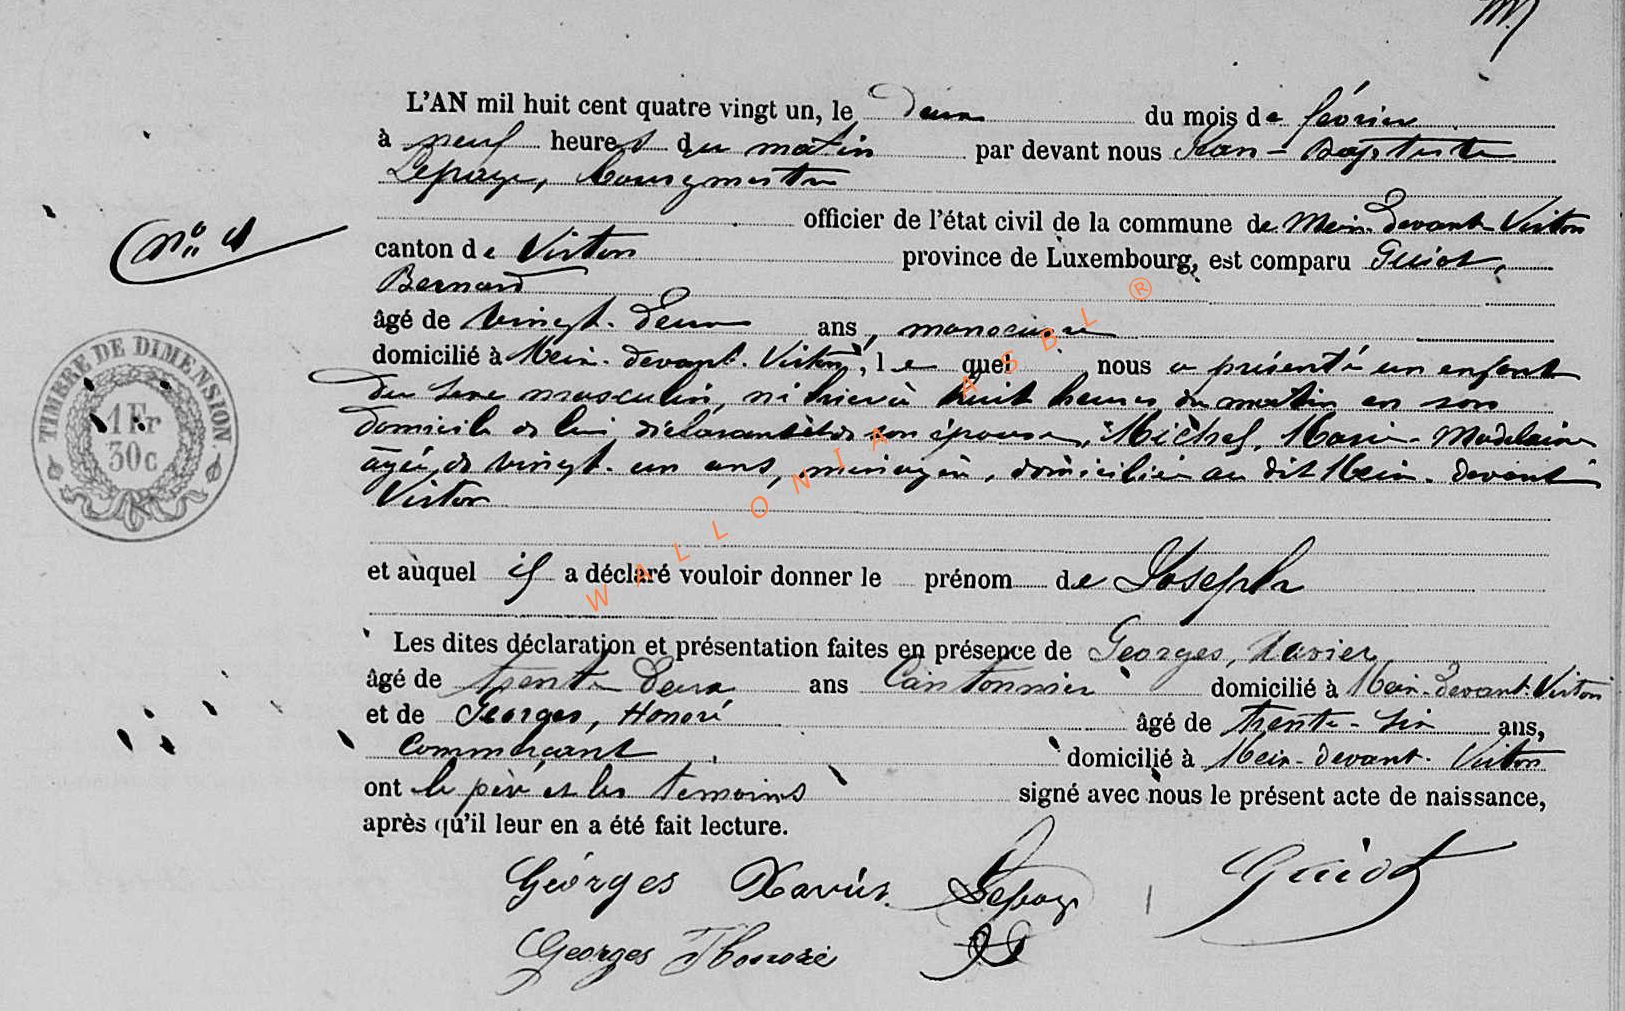 L'AN mil huit cent quatre vingt un, le deux du mois de février
à neuf heures du matin par devant nous Jean-Baptiste
Lepage, bourgmestre
officier de l'état civil de la commune de Meix-devant-Virton
N° 4
canton de Virton province de Luxembourg, est comparu Guiot,
Bernard
âgé de vingt-deux ans, manoeuvre
domicilié à Meix-devant-Virton, lequel nous a présenté un enfant
TIMBRE DE DIMENSION
1 Fr
30 c
du sexe masculin, né hier à huit heures du matin en son
domicile de lui déclarant et de son épouse, Michel, Marie-Madelaine
âgée de vingt-un ans, ménagère, domiciliée au dit Meix-devant
Virton
et auquel il a déclaré vouloir donner le prénom de Joseph
Les dites déclaration et présentation faites en présence de Georges, Xavier
âgé de trente deux ans Cantonnier domicilié à Meix-devant-Virton
et de Georges, Honoré âgé de trente-six ans,
Commerçant domicilié à Meix-devant-Virton
ont le père et les témoins signé avec nous le présent acte de naissance,
après qu'il leur en a été fait lecture.
Géorges Xavier Lepage Guiot
Georges Honoré
WALLONIA ASBL ®